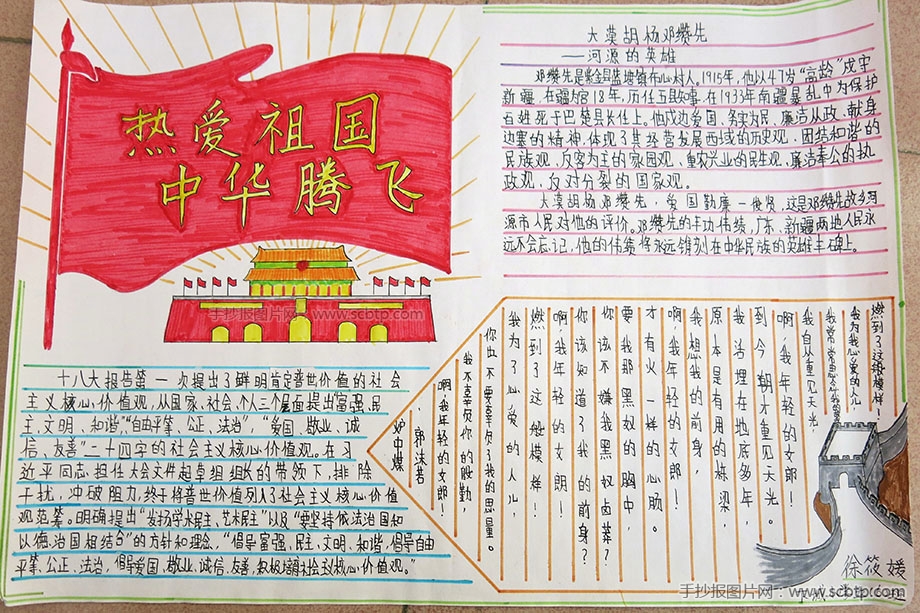 热爱祖国
中华腾飞
手抄报图片网：www.scbtp.com
大漠胡杨邓缵先
——河源的英雄
邓缵先是紫金县蓝塘镇布心村人。1915年，他以47岁"高龄"戍守
新疆，在疆为官18年，历任五县知事，在1933年南疆暴乱中为保护
百姓死于巴楚县长任上。他戍边爱国、务实为民、廉洁从政、献身
边塞的精神，体现了其经营发展西域的历史观、团结和谐的
民族观、反客为主的家园观、重农兴业的民生观、廉洁奉公的执
政观、反对分裂的国家观。
大漠胡杨邓缵先，爱国勤廉一俊贤，这是邓缵先故乡河
源市人民对他的评价。邓缵先的丰功伟绩，广东、新疆两地人民永
远不会忘记，他的伟绩将永远镌刻在中华民族的英雄丰碑上。
十八大报告第一次提出了鲜明肯定普世价值的社会
主义核心价值观，从国家、社会、个人三个层面提出"富强、民
主、文明、和谐"，"自由平等、公正、法治"，"爱国、敬业、诚
信、友善"二十四字的社会主义核心价值观。在习
近平同志担任大会文件起草组组长的带领下，排除
干扰，冲破阻力，终于将普世价值列入了社会主义核心价值
观范筹。明确提出"发扬学术民主、艺术民主"以及"要坚持依法治国和
以德治国相结合"的方针和理念，"倡导富强、民主、文明、和谐，倡导自由
平等、公正、法治，倡导爱国、敬业、诚信、友善，积极培育社会主义核心价值观。"
炉中煤
·郭沫若
啊，我年轻的女郎！
我不辜负你的殷勤，
你也不要辜负了我的思量。
我为了心爱的人儿，
燃到了这般模样！
啊，我年轻的女朗！
你该知道了我的前身？
你该不嫌我黑奴卤莽？
要我那黑奴的胸中，
才有火一样的心肠。
啊，我年轻的女郎！
我想我的前身，
原本是有用的栋梁，
我活埋在地底多年，
到今朝才重见天光。
啊，我年轻的女郎！
我自从重见天光，
我常常思念我的故乡，
我为我心爱的人儿
燃到了这般模样！
徐筱媛
手抄报图片网：www.scbtp.com